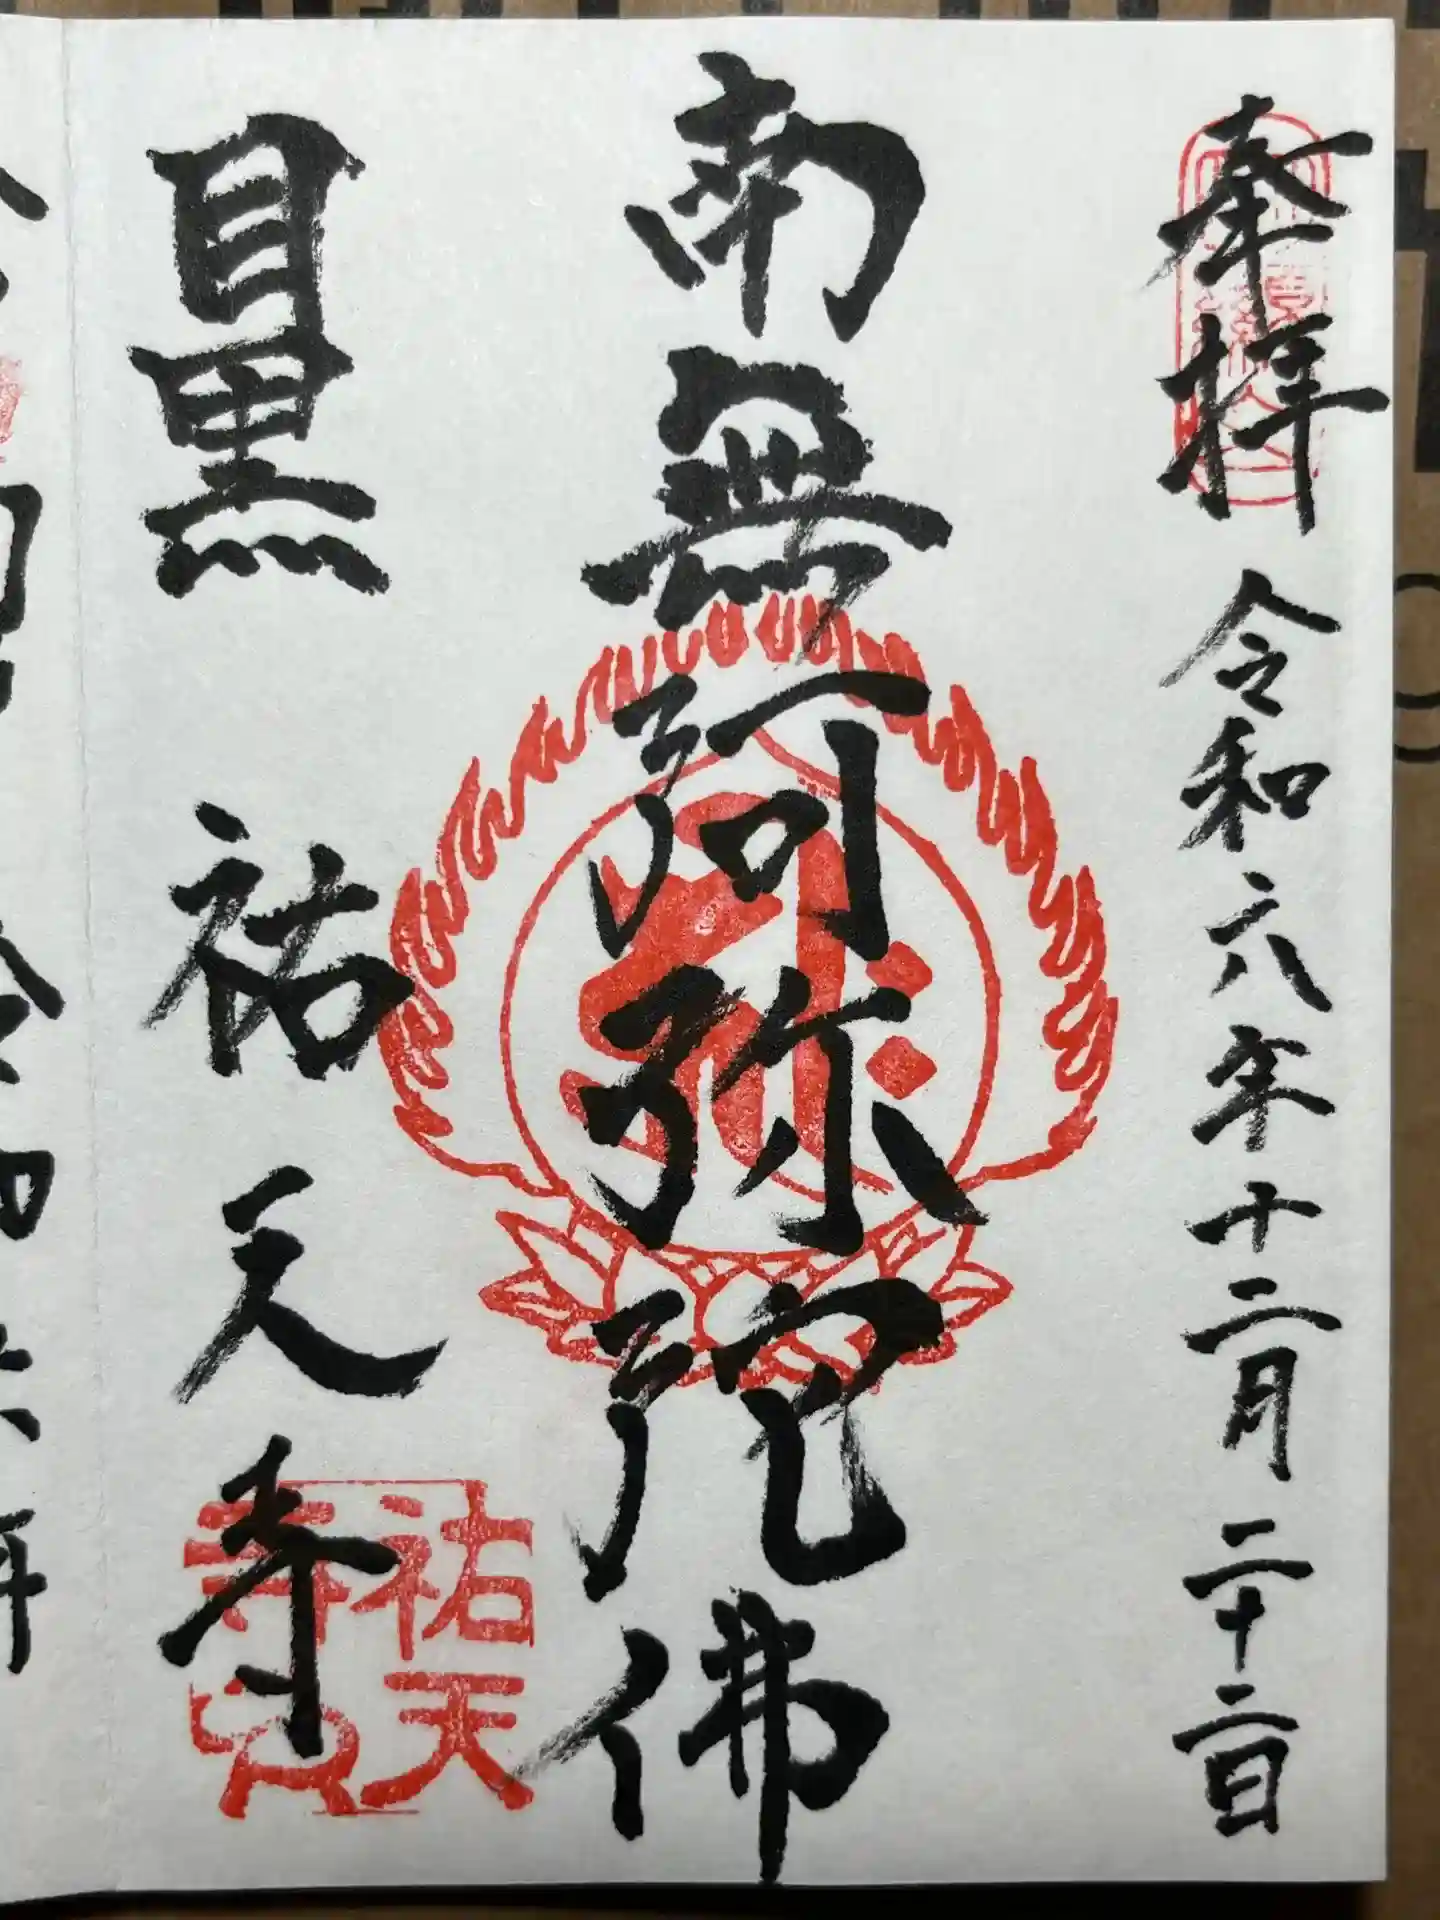 奉拝 令和六年十二月二十二日
南無阿弥陀佛
目黒 祐天寺
祐天
寺